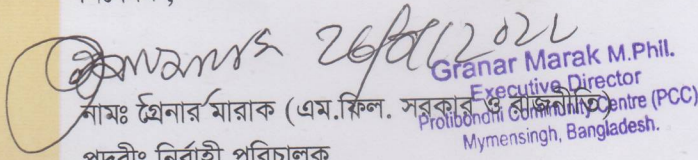 26/01/2022
Granar Marak M.Phil.
Executive Director
Protibondhi Community Centre (PCC)
Mymensingh, Bangladesh.
নামঃ গ্রেনার মারাক (এম.ফিল. সরকার ও রাজনীতি)
পদবীঃ নির্বাহী পরিচালক